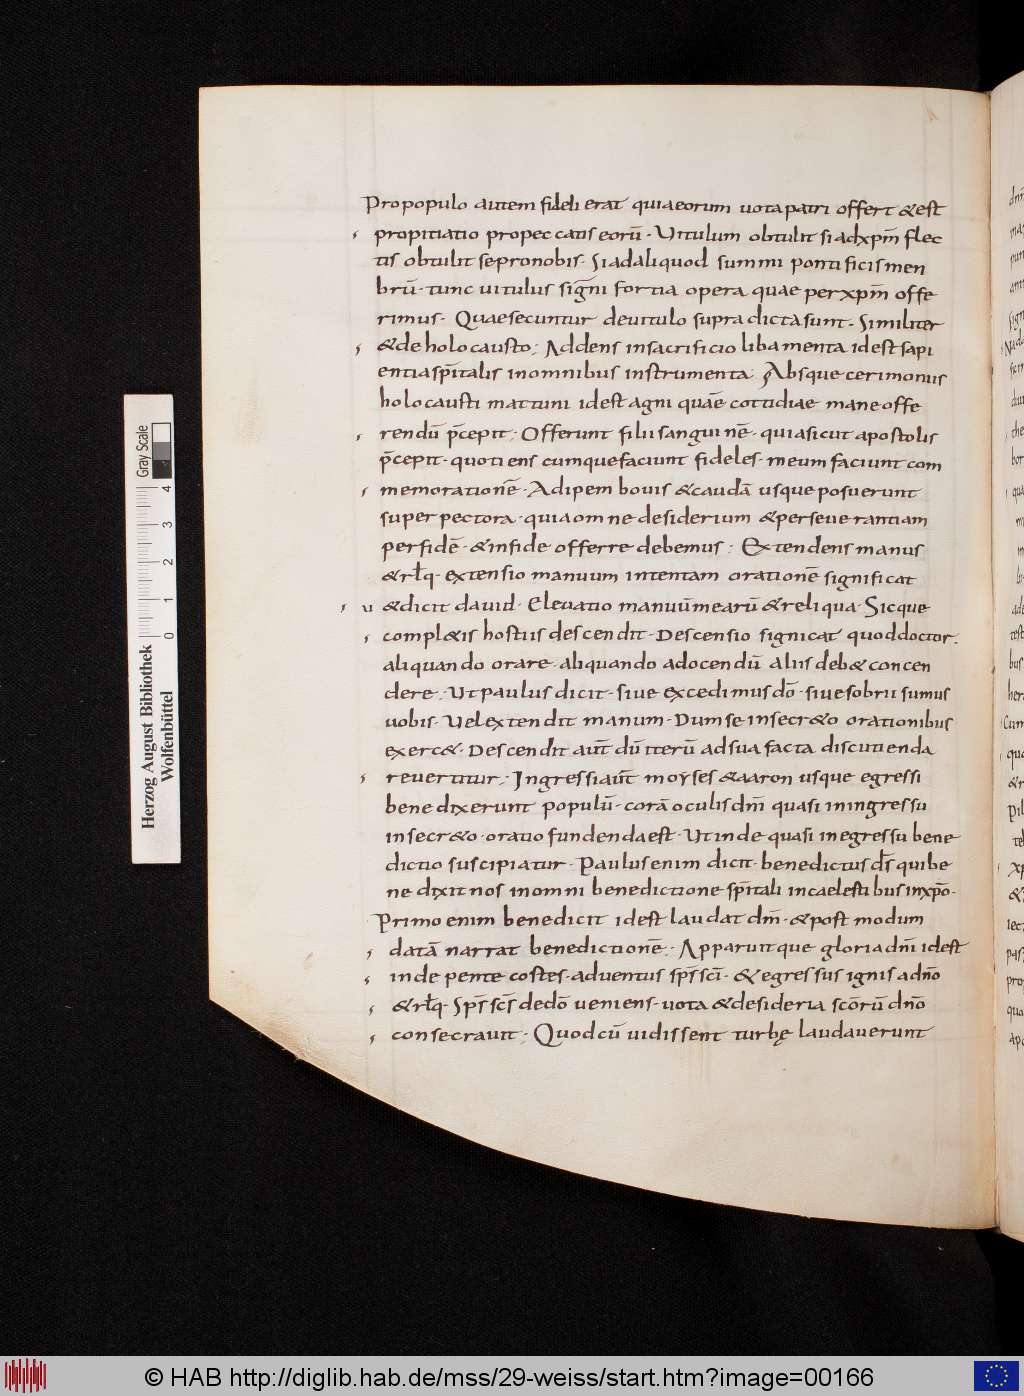 Propopulo autem fideli erat quiaeorum uota patri offert &est
propitiatio propeccatis eorū· Uitulum obtulit siadxpm̄ flec
tis obtulit sepronobis· Siadaliquod summi pontificis men
brū· tunc uitulus sign̄i fortia opera quae perxpm̄ offe
rimus· Quaesecuntur deuitulo supra dicta sunt· Similiter
&de holocausto; Addens insacrificio libamenta idest sapi
entiasp̄italis inomnibus instrumenta. Absque cerimoniis
holocausti matutini idest agni quāe cottidiae mane offe
rendū p̄cepit; Offerunt filii sanguinē· quiasicut apostolis
p̄cepit· quotienscumquefaciunt fideles· meum faciunt com
memorationē· Adipem bouis &caudā usque posuerunt
super pectora· quia omne desiderium &perseuerantiam
perfidē· &infide offerre debemus; Extendens manus
&rłq· extensio manuum intentam orationē significat
u &dicit dauid· Eleuatio manuūmearū &reliqua· Sicque
compl&is hostiis descendit· Descensio signicat quoddoctor·
aliquando orare· aliquando adocendū aliis deb&concen
dere; Utpaulus dicit· siue excedimus dō· siue sobrii sumus
uobis· Uelextendit manum· Dum se insecr&o orationibus
exerc&· Descendit aut̄ dū iterū adsua facta discutienda
reuertitur; Ingressi aut̄ moyses &aaron usque egressi
benedixerunt populū· corā oculis dn̄i quasi iningressu
insecr&o· oratio fundenda est· Ut inde quasi inegressu bene
dictio suscipiatur· Paulus enim dicit· benedictus d̄s quibe
nedixit nos inomni benedictione sp̄itali incaelestibus inxp̄o·
Primo enim benedicit idest laudat dm̄· &postmodum
datā narrat benedictionē; Apparuitque gloria dn̄i idest
inde pentecostes· aduentus sp̄s sc̄i· &egressus ignis adn̄o
&rłq· Sp̄s sc̄s dedō ueniens· uota &desideria sc̄orū dn̄o
consecrauit; Quodcū uidissent turbę laudauerunt
Gray Scale
0 1 2 3 4
Herzog August Bibliothek
Wolfenbüttel
© HAB http://diglib.hab.de/mss/29-weiss/start.htm?image=00166